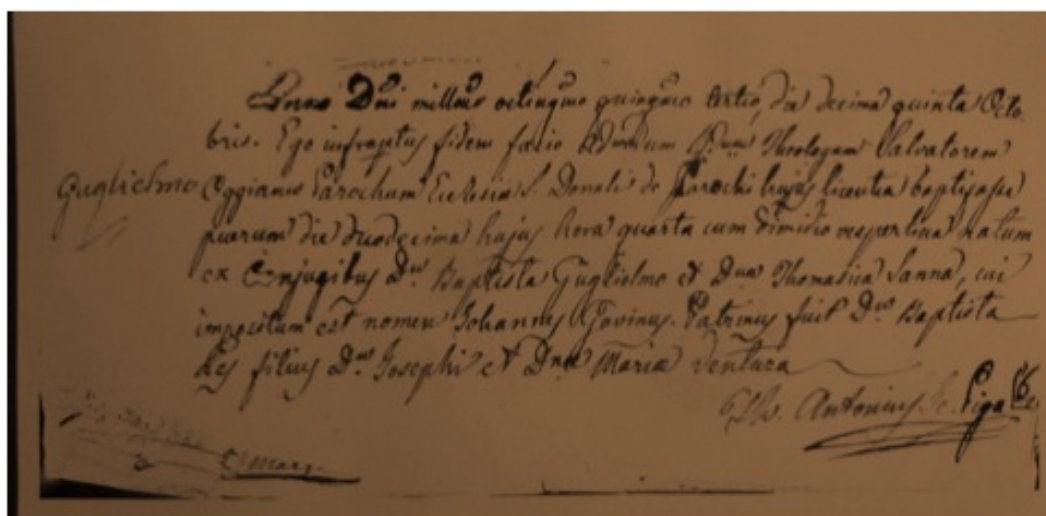 Anno Dni millmo octingmo quingmo tertio, die decima quinta Octo
bris. Ego infraptus fidem facio Admdum Rdum Theologum Salvatorem
Guglielmo
Oggianus Parochum Eclesia S. Donati de Parochi hujus licentia baptisasse
puerum die duodecima hujus hora quarta cum dimidio vespertina natum
ex Conjugibus Dno Baptista Guglielmo et Dna Thomasica Sanna, cui
impositum est nomen Johannes Gavinus. Patrinus fuit Dnus Baptista
filius Dni Josephi et Dnae Maria Ventura
Antonius Piga